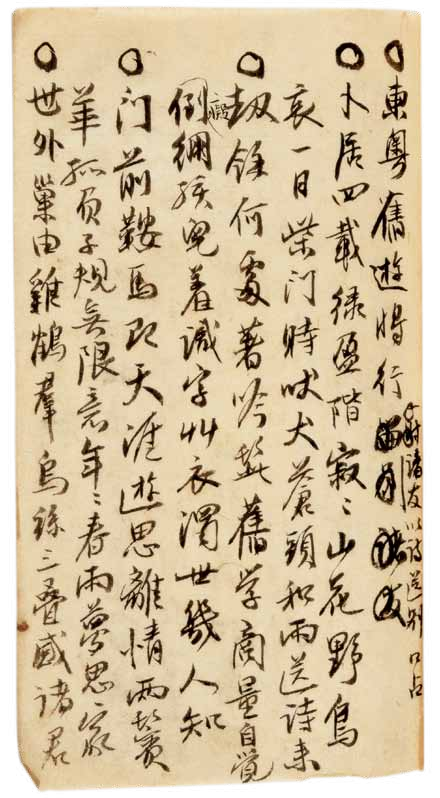 東粵舊遊將行
諸友以詩送別口占
卜居四載綠盈階寂〻山花野鳥
哀一日柴门時吠犬蒼頭和雨送詩来
劫餘何處著吟髭舊学商量自覺
癡
倒绷孩兒羞識字艸衣濁世幾人知
门前鞍馬即天涯遊思離情兩鬢
華孤負子規無限意年〻春雨夢思家
世外巢由雞鶴羣烏絲三疊感諸君